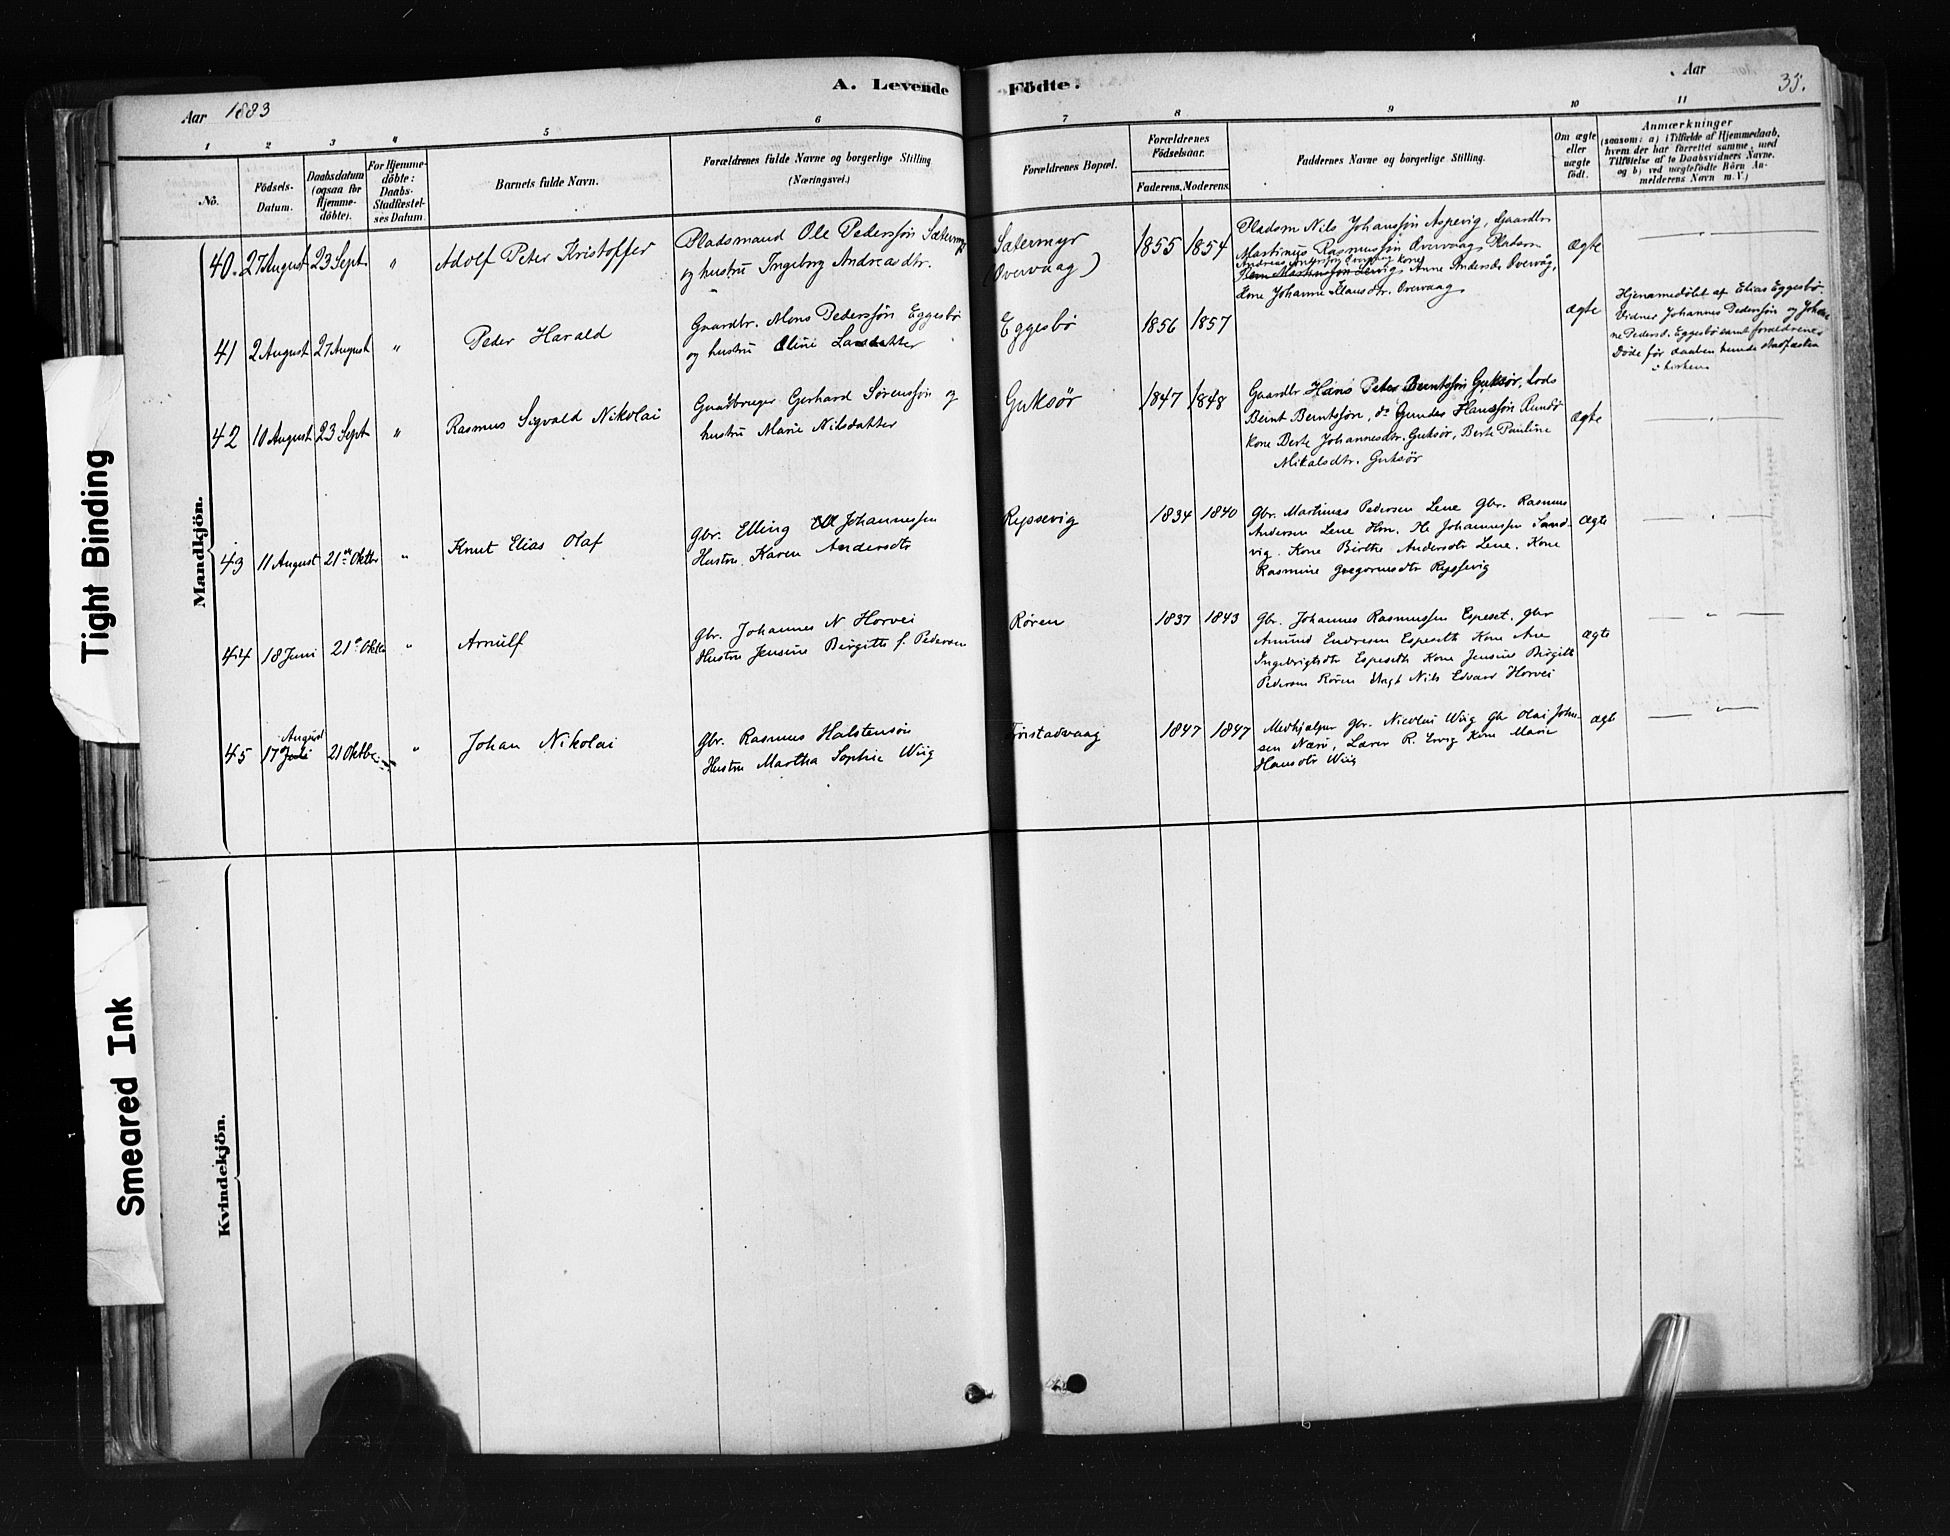 A. Levende Födte.
Aar 1883
Aar
35.
1 2 3 4 5 6 7 8 9 10 11
No.
Födsels-Datum.
Daabsdatum (ogsaa for Hjemmedöbte).
For Hjemmedöbte: Daabs-Stadfæstelses Datum.
Barnets fulde Navn.
Forældrenes fulde Navne og borgerlige Stilling (Næringsvei.)
Forældrenes Bopæl.
Forældrenes Födselsaar.
Faderens. Moderens.
Faddernes Navne og borgerlige Stilling.
Om ægte eller uægte födt.
Anmærkninger
(saasom: a) i Tilfælde af Hjemmedaab,
hvem der har forrettet samme, med
Tilföielse af to Daabsvidners Navne.
og b) ved uægtefödte Börn Anmelderens Navn m. V.)
Mandkjön.
40. 27 August 23 Sept. " Adolf Peter Kristoffer
Pladsmand Ole Pederssøn Sætermyr
og hustru Ingeborg Andreasdtr.
Sætermyr
(Overvaag)
1855 1854
Pladsm Nils Johanssøn Aspevig, Gaardbr.
Martinus Rasmussøn Overvaag, Pladsm
Kone
Anne Andersdr Overvåg,
Kone Johanne Klausdtr. Overvaag
ægte
41 2 August 27 August " Peder Harald
Gaardbr. Mons Pederssøn Eggesbö
og hustru Oline Larsdatter
Eggesbö
1856 1857
ægte
Hjemmedöbt af Elias Eggesbö.
Vidner Johannes Pederssøn og Johanne Pedersd. Eggesbö samt forældrene
Døde før daaben kunde stadfæstes
i kirken
42 10 August 23 Sept " Rasmus Sigvald Nikolai
Gaardbruger Gerhard Sørenssøn og
hustru Marie Nilsdatter
Guksör
1847 1848
Gaardbr Hans Peter Berntssøn Guksör, Lods
Bernt Berntssøn, do Gunder Hanssøn Rundö
Kone Berte Johannesdtr. Guksör, Berte Pauline
Mikalsdtr. Guksör
ægte
43 11 August 21de Oktbr " Knut Elias Olaf
Gbr. Elling Johannessen
Hustru Karen Andersdtr
Ryssevig
1834 1840
Gbr. Martinus Pedersen Lene Gbr. Rasmus
Andersen Lene Hm. H. Johannessen Sandvig. Kone Birthe Andersdtr Lene. Kone
Rasmine Gregoriusdtr Ryssevig
ægte
44 18 Juni 21de Oktbr " Arnulf
Gbr. Johannes N Horvei
Hustru Jensine Birgitte f. Pedersen
Røren
1837 1843
Gbr. Johannes Rasmussen Espeset. gbr
Amund Endresen Espeseth Kone Ane
Ingebrigtsdtr Espeseth Kone Jensine Birgitte
Pedersen Røren Ungk Nils Edvard Horvei
ægte
45 17 August 21 Oktbr " Johan Nikolai
Gbr. Rasmus Halstensøn
Hustru Martha Sophie Wiig
Frøistadvaag
1847 1847
Medhjælper Gbr. Nicolai Wiig Gbr Olai Johnsen Nærø, Lærer R. Ervig Kone Marie
Hansdtr Wiig
ægte
Kvindekjön.
Tight Binding
Smeared Ink